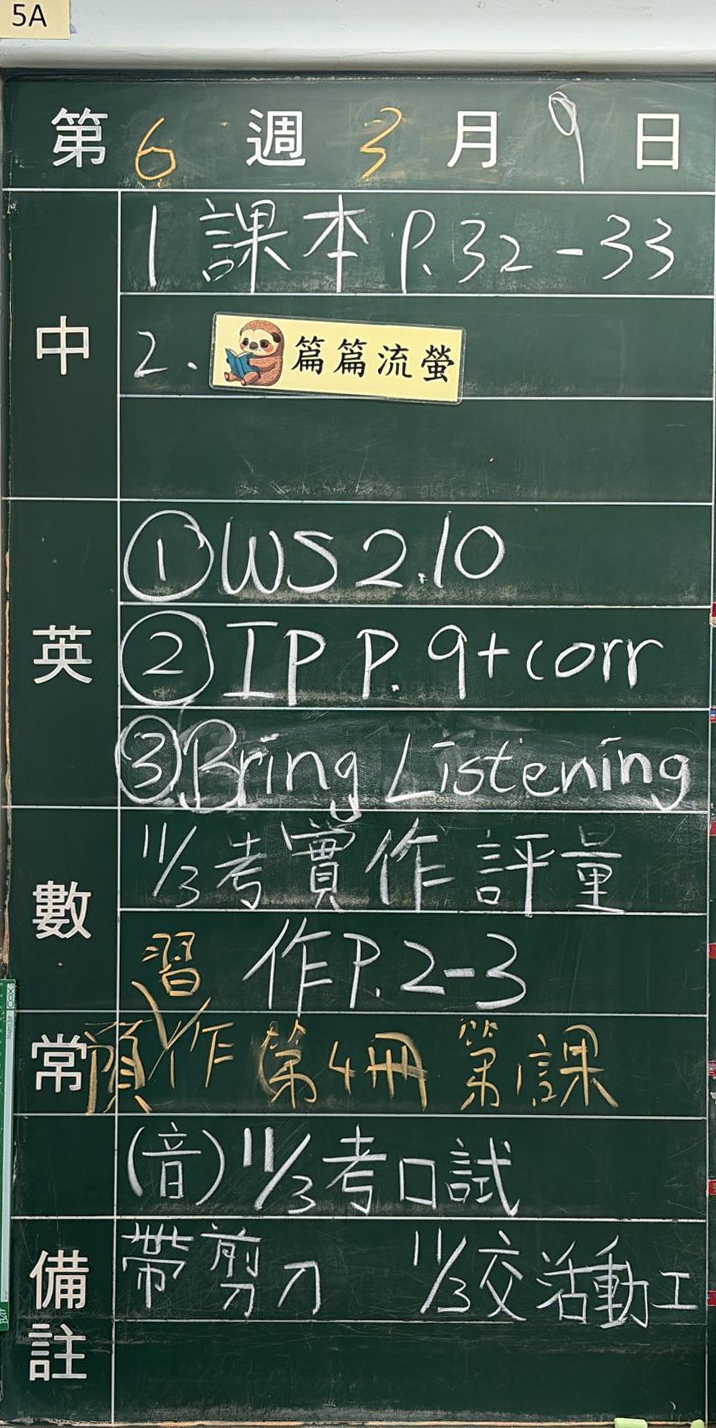 5A
第 6 週 3 月 9 日
中
1 課本 P.32-33
2. 篇篇流螢
英
① WS 2.10
② IP P.9+corr
③ Bring Listening
數
11/3 考實作評量
習作 P.2-3
常
預作 第4冊 第1課
(音) 11/3 考口試
備註
帶剪刀 11/3 交活動工